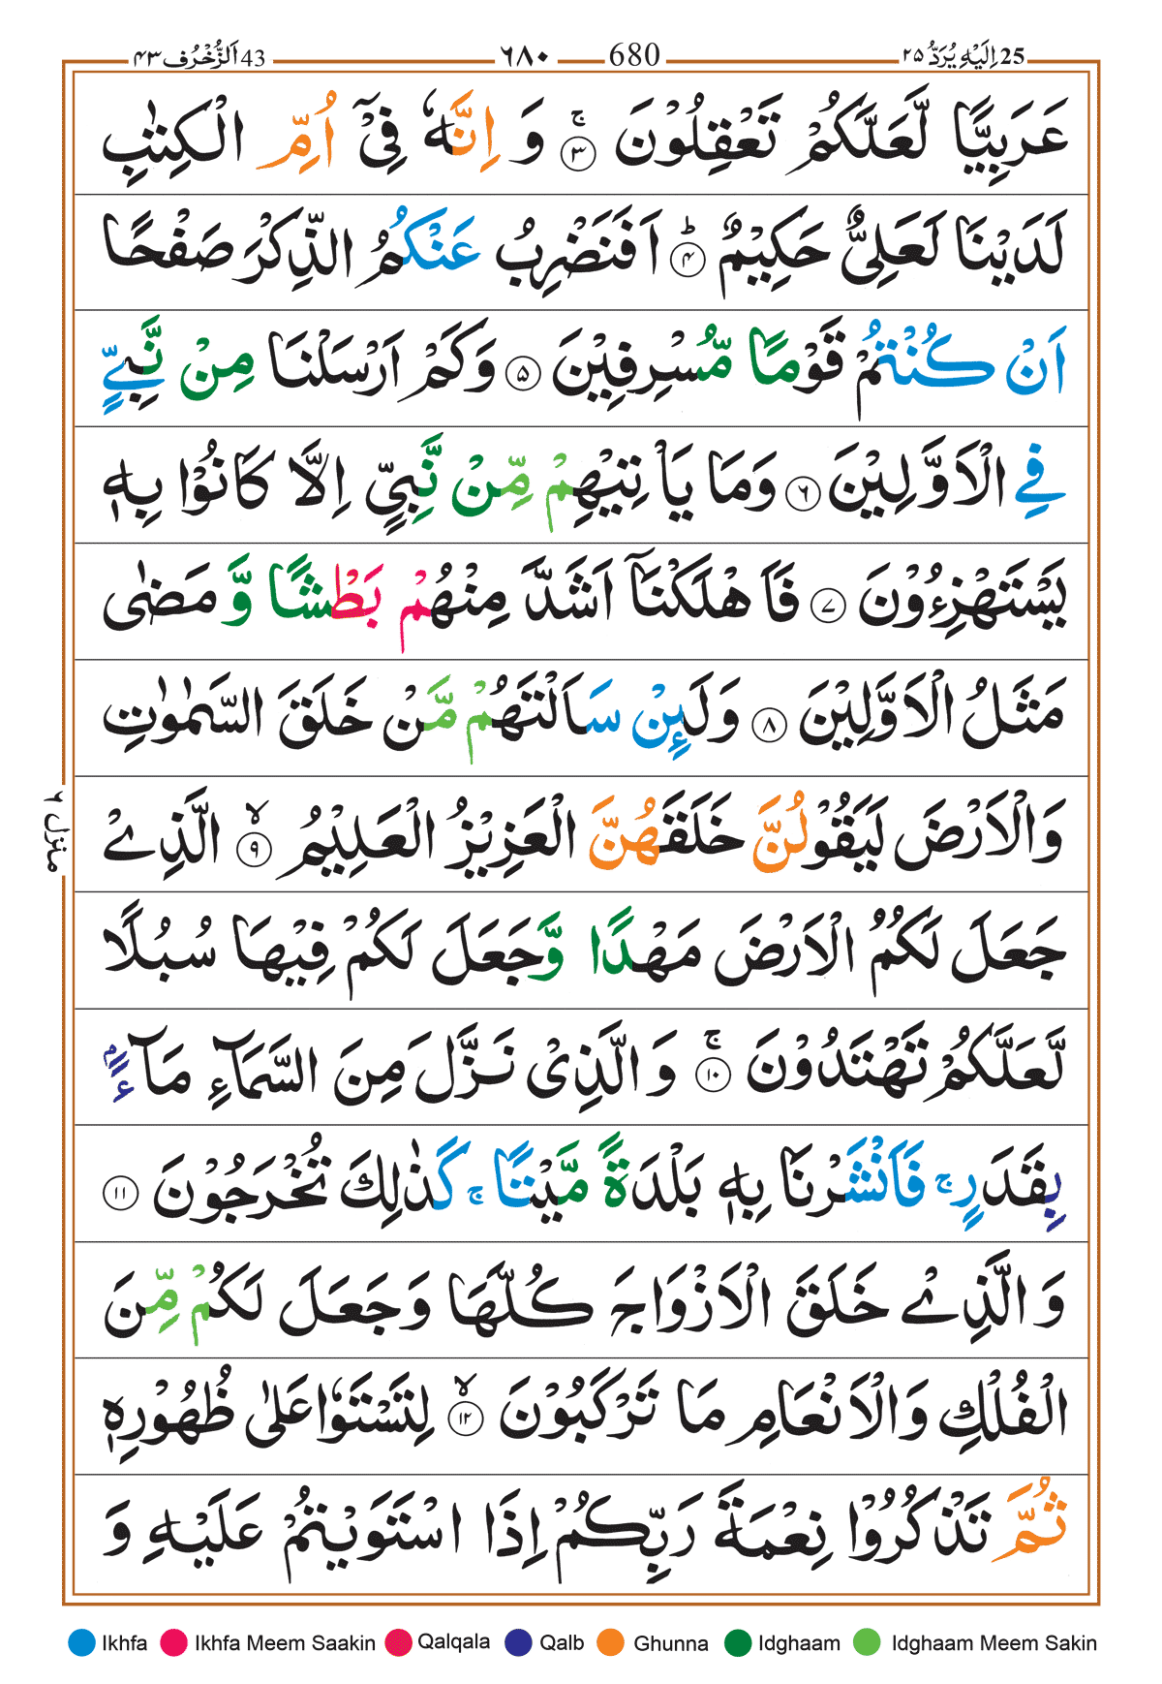 25 اِلَيْهِ يُرَدُّ ٢٥ 680 ٦٨٠ 43 اَلزُّخْرُف ٤٣
عَرَبِيًّا لَّعَلَّكُمْ تَعْقِلُوْنَ ۚ‏﴿۳﴾ وَ اِنَّهٗ فِىْۤ اُمِّ الْكِتٰبِ
لَدَيْنَا لَعَلِىٌّ حَكِيْمٌ ؕ‏﴿۴﴾ اَفَنَضْرِبُ عَنْكُمُ الذِّكْرَ صَفْحًا
اَنْ كُنْتُمْ قَوْمًا مُّسْرِفِيْنَ ‏﴿۵﴾ وَكَمْ اَرْسَلْنَا مِنْ نَّبِىٍّ
فِى الْاَوَّلِيْنَ ‏﴿۶﴾ وَمَا يَاْتِيْهِمْ مِّنْ نَّبِىٍّ اِلَّا كَانُوْا بِهٖ
يَسْتَهْزِءُوْنَ ‏﴿۷﴾ فَاَهْلَكْنَاۤ اَشَدَّ مِنْهُمْ بَطْشًا وَّ مَضٰى
مَثَلُ الْاَوَّلِيْنَ ‏﴿۸﴾ وَلَٮِٕنْ سَاَلْتَهُمْ مَّنْ خَلَقَ السَّمٰوٰتِ
وَالْاَرْضَ لَيَقُوْلُنَّ خَلَقَهُنَّ الْعَزِيْزُ الْعَلِيْمُ ۙ‏﴿۹﴾ الَّذِىْ
جَعَلَ لَكُمُ الْاَرْضَ مَهْدًا وَّجَعَلَ لَكُمْ فِيْهَا سُبُلًا
لَّعَلَّكُمْ تَهْتَدُوْنَ ۚ‏﴿۱۰﴾ وَالَّذِىْ نَزَّلَ مِنَ السَّمَآءِ مَآءًۢ
بِقَدَرٍ ۚ فَاَنْشَرْنَا بِهٖ بَلْدَةً مَّيْتًا ۚ كَذٰلِكَ تُخْرَجُوْنَ ‏﴿۱۱﴾
وَالَّذِىْ خَلَقَ الْاَزْوَاجَ كُلَّهَا وَجَعَلَ لَكُمْ مِّنَ
الْفُلْكِ وَالْاَنْعَامِ مَا تَرْكَبُوْنَ ۙ‏﴿۱۲﴾ لِتَسْتَوٗا عَلٰى ظُهُوْرِهٖ
ثُمَّ تَذْكُرُوْا نِعْمَةَ رَبِّكُمْ اِذَا اسْتَوَيْتُمْ عَلَيْهِ وَ
منزل ٦
Ikhfa Ikhfa Meem Saakin Qalqala Qalb Ghunna Idghaam Idghaam Meem Sakin